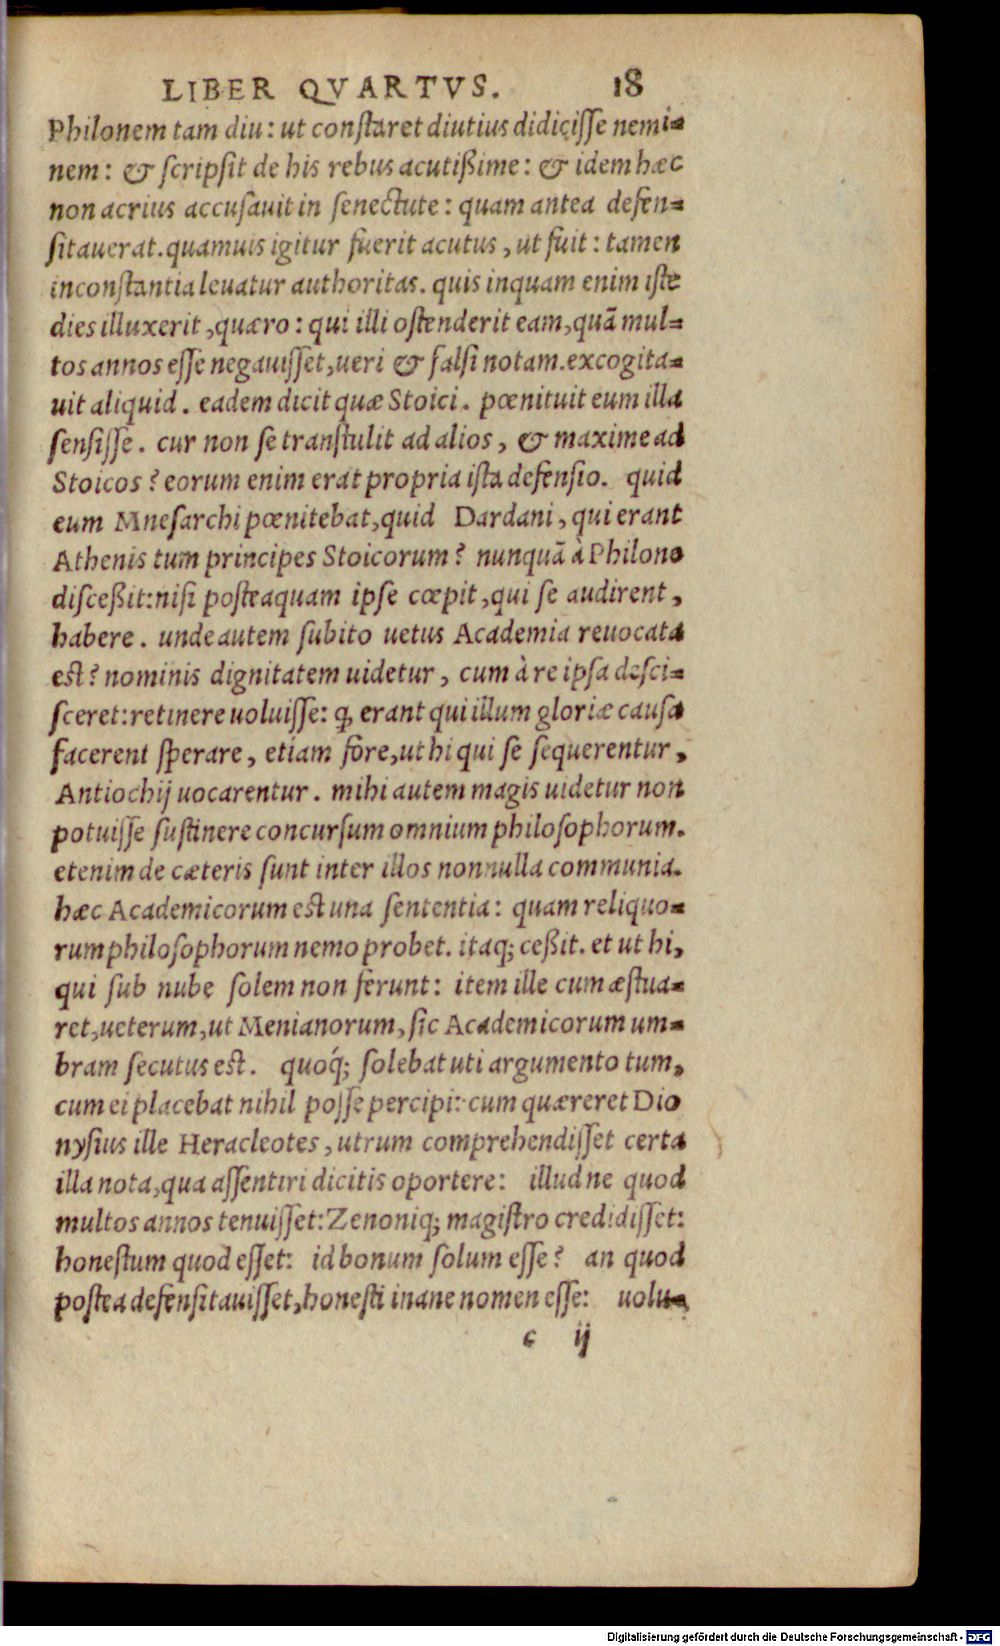 LIBER QVARTVS. 18
Philonem tam diu: ut conſtaret diutius didiciſſe nemi=
nem: & ſcripſit de his rebus acutißime: & idem hæc
non acrius accuſauit in ſenectute: quam antea defen=
ſitauerat. quamuis igitur fuerit acutus, ut fuit: tamen
inconſtantia leuatur authoritas. quis inquam enim iſte
dies illuxerit, quæro: qui illi oſtenderit eam, quã mul=
tos annos eſſe negauiſſet, ueri & falſi notam. excogita=
uit aliquid. eadem dicit quæ Stoici. pœnituit eum illa
ſenſiſſe. cur non ſe tranſtulit ad alios, & maxime ad
Stoicos? eorum enim erat propria iſta defenſio. quid
eum Mneſarchi pœnitebat, quid Dardani, qui erant
Athenis tum principes Stoicorum? nunquã à Philone
diſceßit: niſi poſteaquam ipſe cœpit, qui ſe audirent,
habere. unde autem ſubito uetus Academia reuocata
est? nominis dignitatem uidetur, cum à re ipſa deſci=
ſceret: retinere uoluiſſe: ꝙ erant qui illum gloriæ cauſa
facerent ſperare, etiam fore, ut hi qui ſe ſequerentur,
Antiochij uocarentur. mihi autem magis uidetur non
potuiſſe ſuſtinere concurſum omnium philoſophorum.
etenim de cæteris ſunt inter illos nonnulla communia.
hæc Academicorum est una ſententia: quam reliquo=
rum philoſophorum nemo probet. itaq; ceßit. et ut hi,
qui ſub nube ſolem non ferunt: item ille cum æſtua=
ret, ueterum, ut Menianorum, ſic Academicorum um=
bram ſecutus est. quoq́; ſolebat uti argumento tum,
cum ei placebat nihil poſſe percipi: cum quæreret Dio
nyſius ille Heracleotes, utrum comprehendiſſet certa
illa nota, qua aſſentiri dicitis oportere: illud ne quod
multos annos tenuiſſet: Zenoniq; magiſtro credidiſſet:
honeſtum quod eſſet: id bonum ſolum eſſe? an quod
poſtea defenſitauiſſet, honeſti inane nomen eſſe: uolu=
c ij
Digitalisierung gefördert durch die Deutsche Forschungsgemeinschaft - DFG